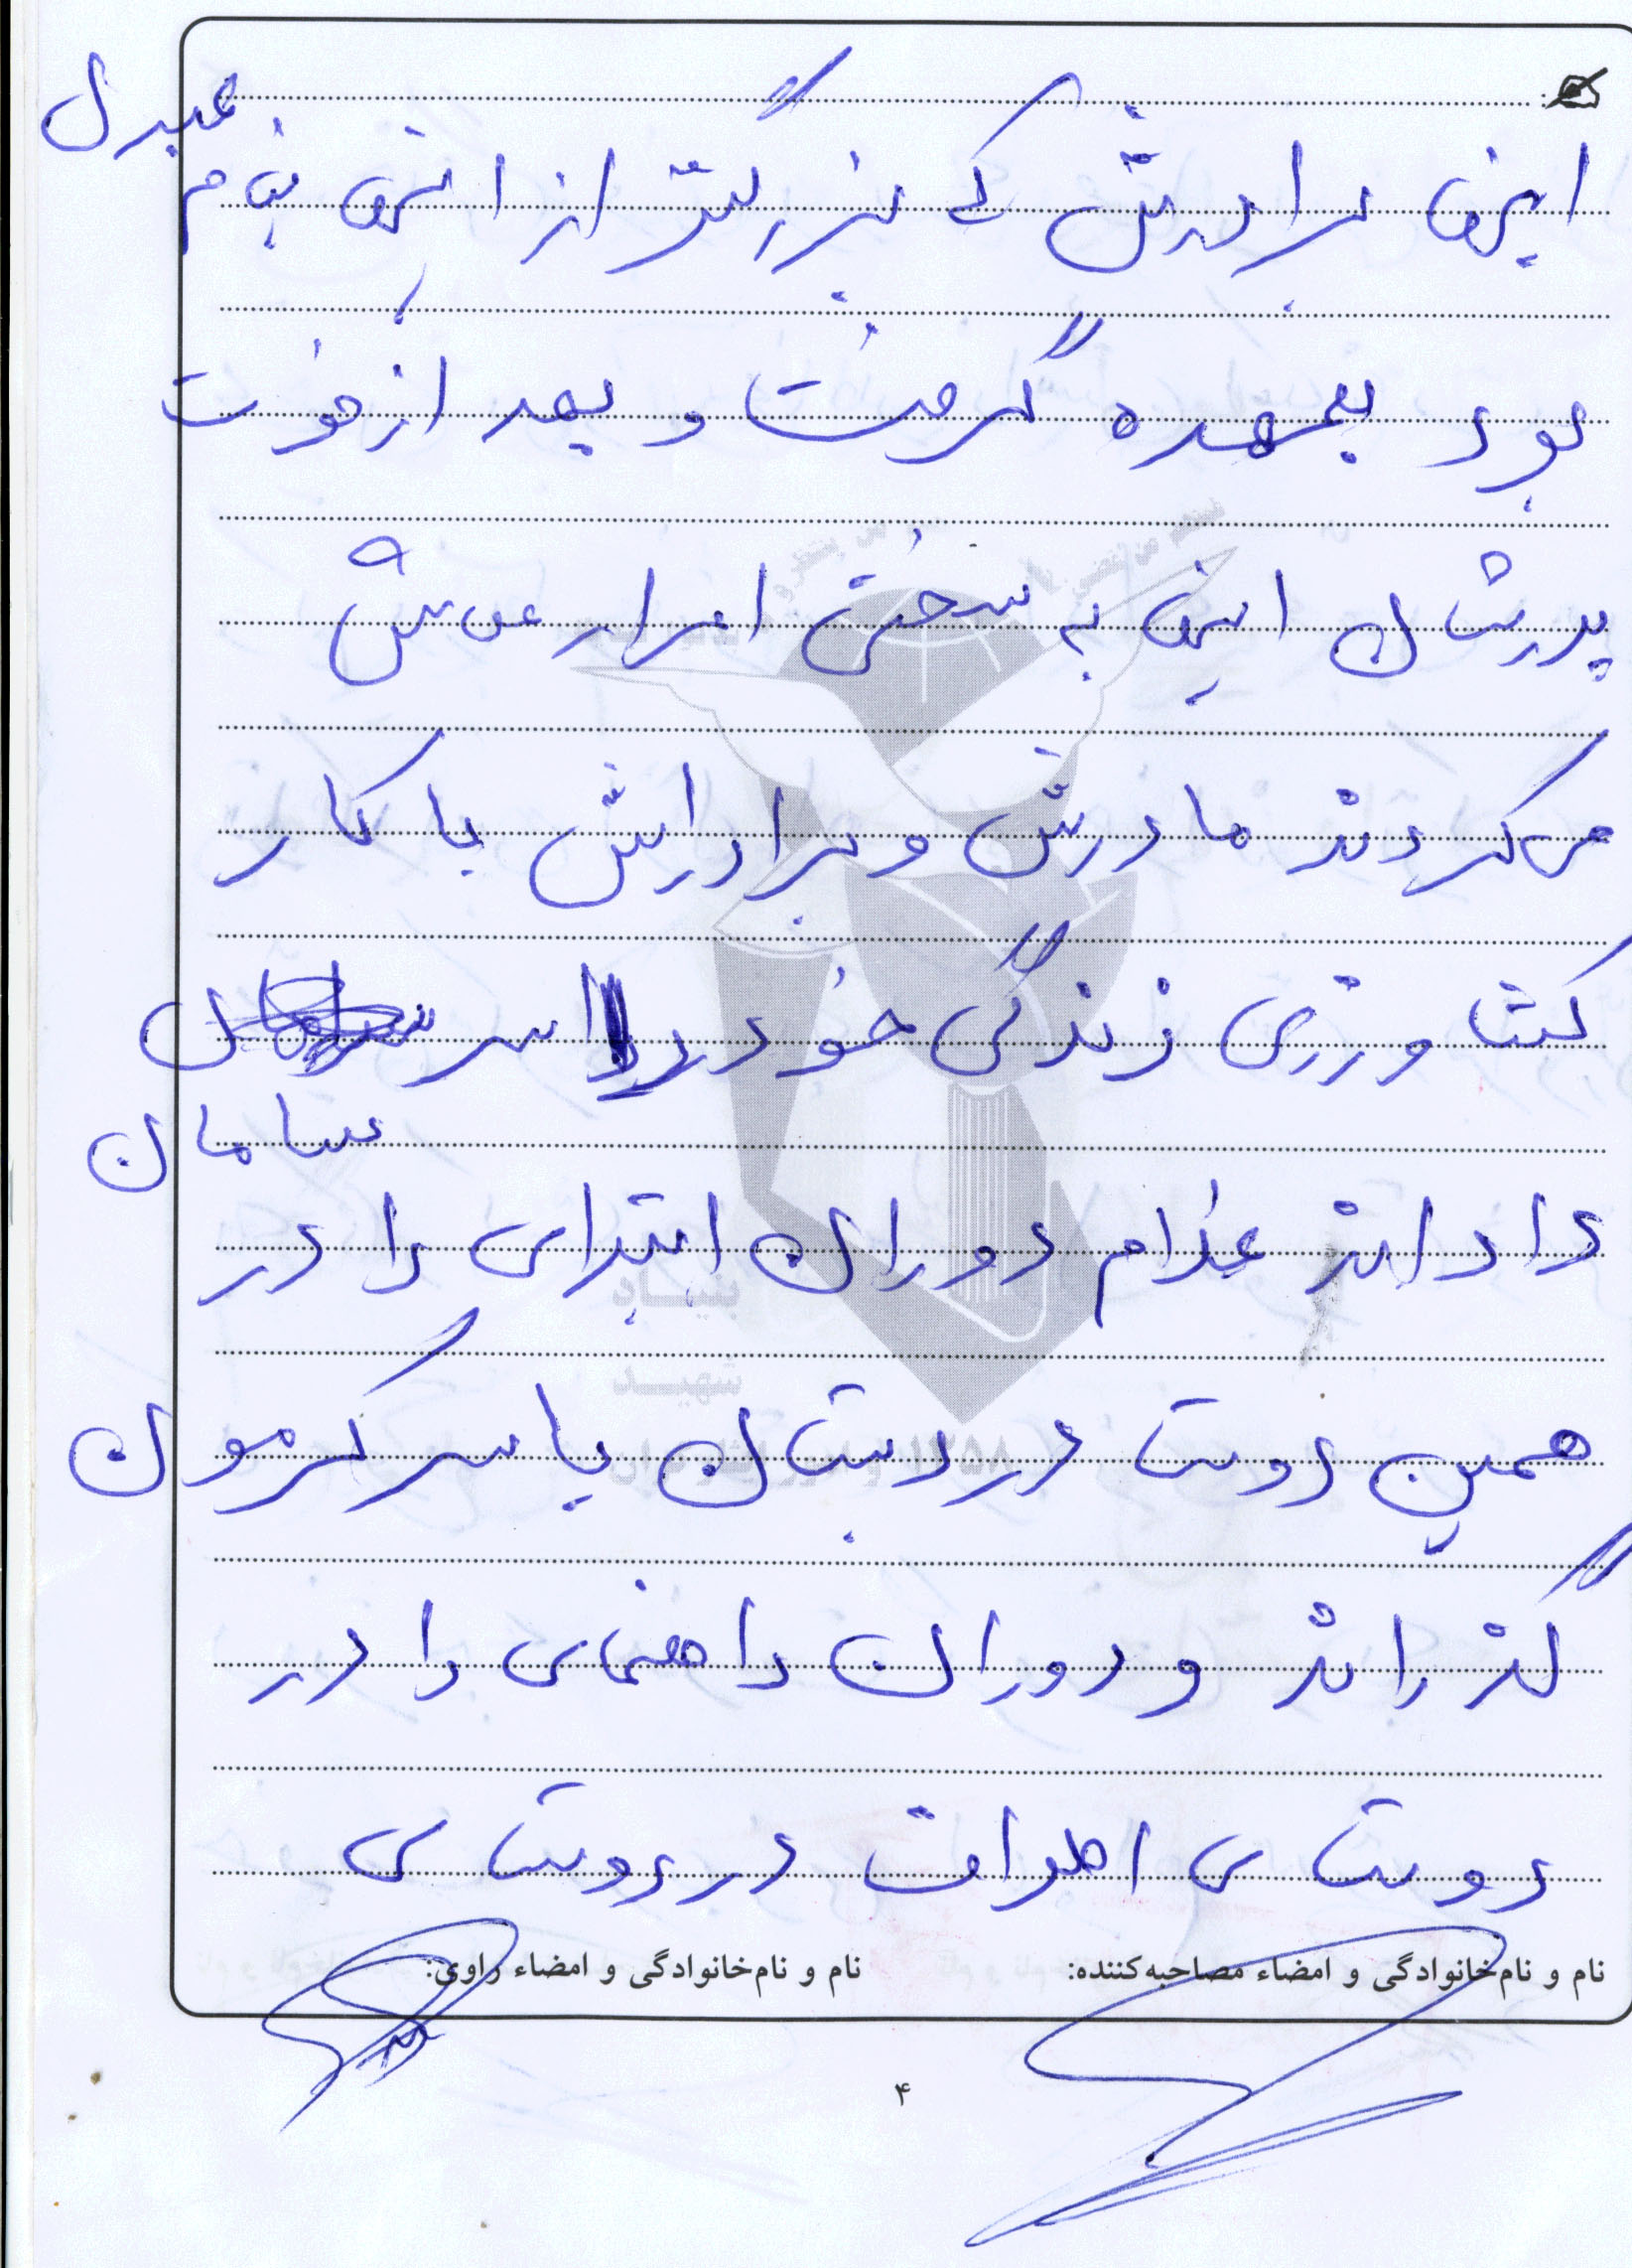 اینها برادرش که بزرگتر از اینها بنام عبدل
بود بعهده گرفت و بعد از فوت
پدرشان اینها به سختی امرار معاش
می کردند مادرش و برادرانش با کار
کشاورزی زندگی خود را سر
سامان
دادند غلام دوران ابتدای را در
همین روستا در دبستان یاسر کرمون
گذراند و دوران راهنمای را در
روستای اطراف در روستای
نام و نام‌خانوادگی و امضاء مصاحبه‌کننده: نام و نام‌خانوادگی و امضاء راوی:
۴
بنیاد
شهید